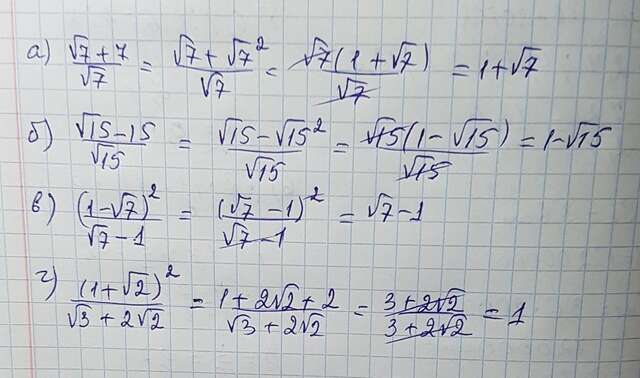 а) (√7 + 7)/√7 = (√7 + √7²)/√7 = √7(1 + √7)/√7 = 1 + √7
б) (√15 − 15)/√15 = (√15 − √15²)/√15 = √15(1 − √15)/√15 = 1 − √15
в) (1 − √7)²/(√7 − 1) = (√7 − 1)²/(√7 − 1) = √7 − 1
г) (1 + √2)²/(√3 + 2√2) = (1 + 2√2 + 2)/(√3 + 2√2) = (3 + 2√2)/(3 + 2√2) = 1